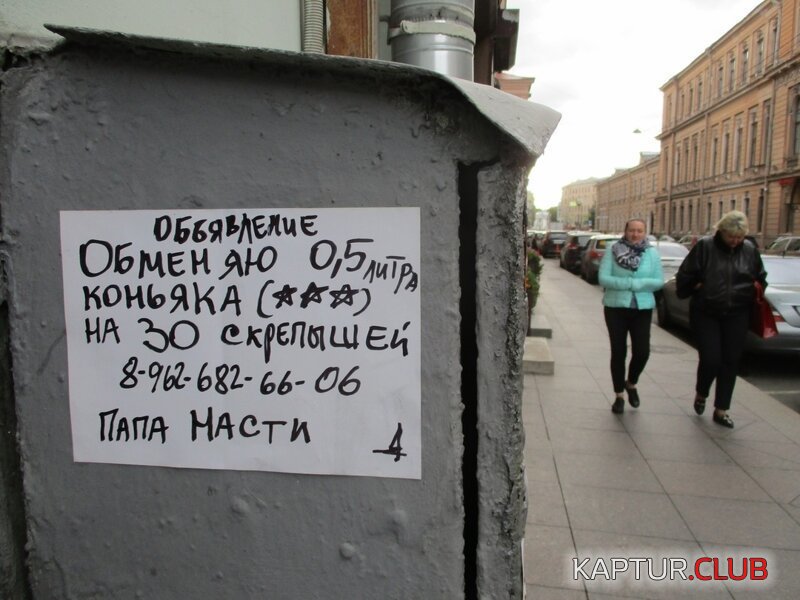 ОБЪЯВЛЕНИЕ
ОБМЕНЯЮ 0,5 ЛИТРА
КОНЬЯКА (★★★)
НА 30 СКРЕПЫШЕЙ
8-962-682-66-06
ПАПА НАСТИ
KAPTUR.CLUB